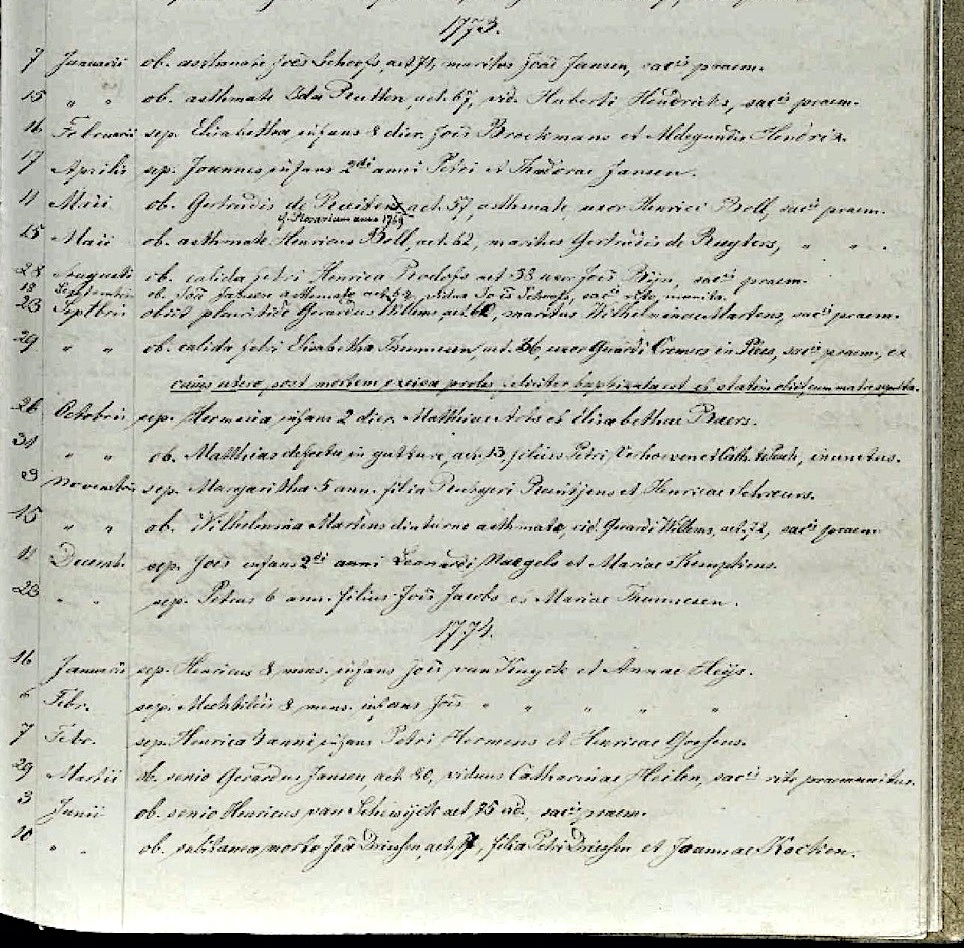 1773.
7 Januarii ob. asthmate Joēs Schoofs, aet. 71, maritus Joāe Jansen, sacis praem.
15 " " ob. asthmate Ida Rutten aet. 67, vid. Huberti Hendricks, sacis praem.
16 Februarii sep. Elisabetha infans 8 dier. Joīs Brockmans et Aldegundis Hendrix.
17 Aprilis sep. Joannes infans 2di anni Petri et Theodorae Jansen.
11 Maii ob. Gertrudis de Ruiters aet. 57, asthmate, uxor Henrici Boll, sacis praem.
cf. Florarium anno 1769
15 Maii ob. asthmate Henricus Boll, aet. 62, maritus Gertrudis de Ruyters, " " .
28 Augusti ob. calida febri Henrica Roelofs aet 38 uxor Joīs sacis praem.
18 Septembris ob. Joā Jansen asthmate aet. vidua Joīs Schoofs, sacis rite munita.
23 Septbris obiit pleuritide Gerardus Willems, aet. maritus Wilhelminae Martens, sacis praem.
29 " " ob. calida febri Elisabetha Theunissen, aet. 36, uxor Gerardi Cremers in sacis praem., ex
cuius utero, post mortem excisa proles feliciter baptizata est et statim obiit, cum matre sepulta.
26 Octobris sep. Hermina infans 2 dier. Matthiae et Elisabethae Baers.
31 " " ob. Matthias defectu in gutture, aet. 13, filius Petri Verhoeven et Cath. inunctus.
3 Novembris sep. Margaritha 5 ann. filia Rutgeri Ruitjens et Henricae
15 " " ob. Wilhelmina Martens diuturno asthmate, vid. Gerardi Willems, aet. 72, sacis praem.
11 Decemb. sep. Joēs infans 2di anni Leonardi Naegels et Mariae Kempkens.
23 " " sep. Petrus 6 ann. filius Joīs Jacobs et Mariae Theunissen.
1774.
16 Januarii sep. Henricus 8 mens. infans Joīs van et Annae Heijs.
6 Febr. sep. Mechtildis 8 mens. infans Joīs " " " " "
7 Febr. sep. Henrica 3 anni infans Petri Hermens et Henricae Goossens.
29 Martii ob. senio Gerardus Jansen, aet. 80, viduus Catharinae Heilen, sacis rite praemunitus.
3 Junii ob. senio Henricus van aet 75 vid., sacis praem.
10 " " ob. subitanea morte Joā Driessen, aet. 7, filia Petri Driessen et Joannae Kocken.